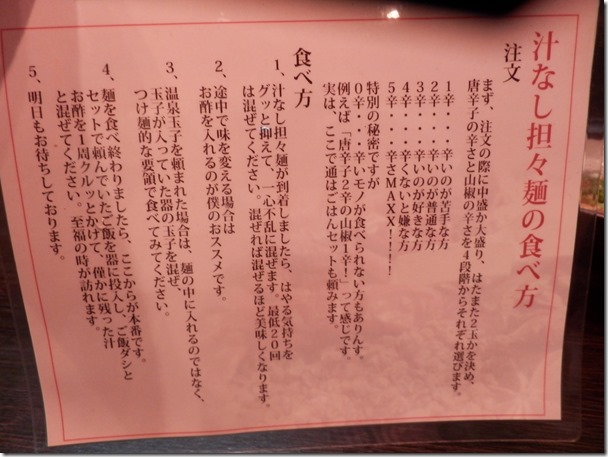 汁なし担々麺の食べ方
注文
まず、注文の際に中盛か大盛り、はたまた2玉かを決め、
唐辛子の辛さと山椒の辛さを4段階からそれぞれ選びます。
1辛・・・辛いのが苦手な方
2辛・・・辛いのが普通な方
3辛・・・辛いのが好きな方
4辛・・・辛くないと嫌な方
5辛・・・辛さMAXX！！！！
特別の秘密ですが
0辛・・・辛いモノが食べられない方もありんす。
例えば、「唐辛子2辛の山椒1辛！」って感じです。
実は、ここで通はごはんセットも頼みます。
食べ方
1、汁なし担々麺が到着しましたら、はやる気持ちを
グッと抑えて、一心不乱に混ぜます。最低20回
は混ぜてください。混ぜれば混ぜるほど美味しくなります。
2、途中で味を変える場合は
お酢を入れるのが僕のおススメです。
3、温泉玉子を頼まれた場合は、麺の中に入れるのではなく、
玉子が入っていた器の玉子を混ぜ、
つけ麺的な要領で食べてみてください。
4、麺を食べ終わりましたら、ここからが本番です。
セットで頼んでいたご飯を器に投入し、ご飯ダシと
お酢を1周クルッとかけて、僅かに残った汁
と混ぜてください。至福の時が訪れます。
5、明日もお待ちしております。